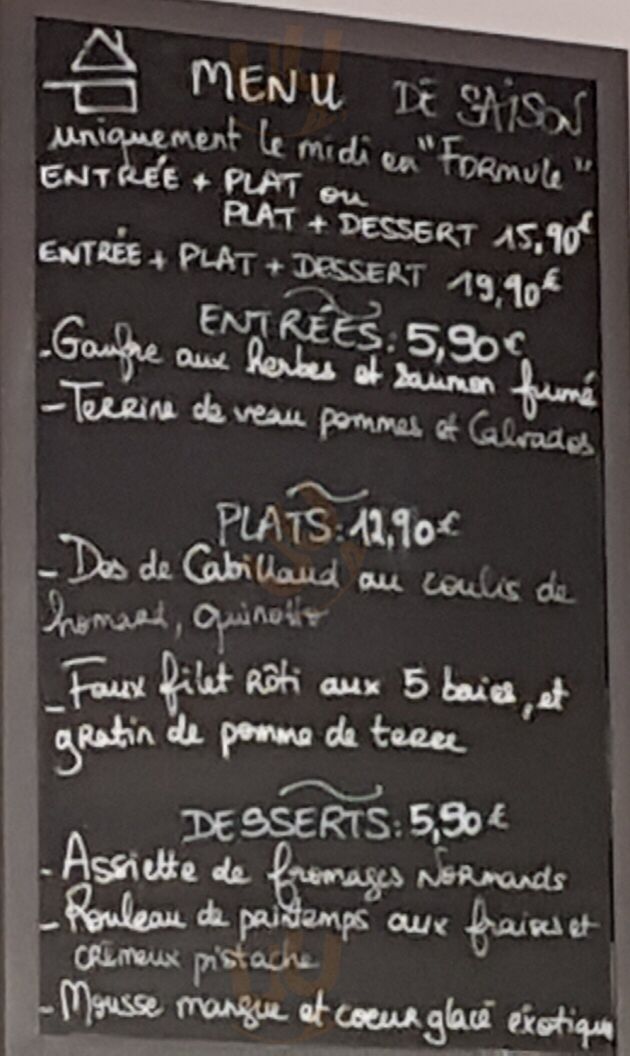 MENU DE SAISON
uniquement le midi en "FORMULE"
ENTRÉE + PLAT ou
PLAT + DESSERT 15,90€
ENTRÉE + PLAT + DESSERT 19,90€
ENTRÉES: 5,90€
- Gaufre aux herbes et saumon fumé
- Terrine de veau pommes et Calvados
PLATS: 12,90€
- Dos de Cabillaud au coulis de
homard, quinotto
- Faux filet Rôti aux 5 baies, et
gratin de pomme de terre
DESSERTS: 5,90€
- Assiette de fromages Normands
- Rouleau de printemps aux fraises et
crémeux pistache
- Mousse mangue et coeur glacé exotique